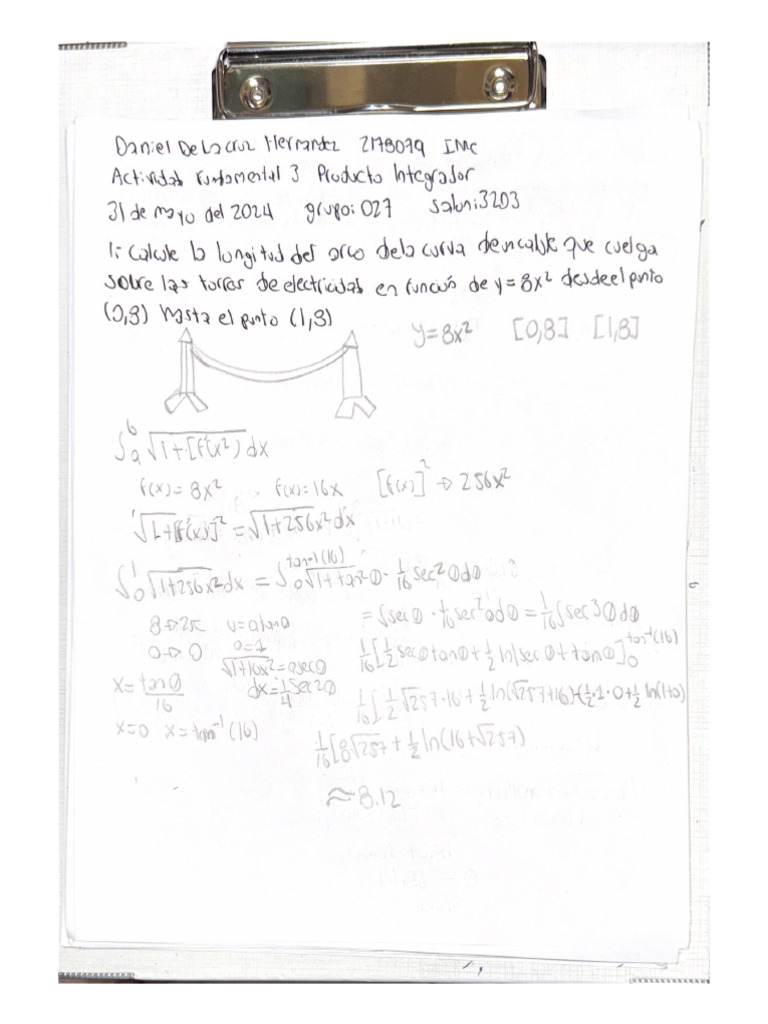 Daniel De La cruz Hernandez 2178079 IMC
Actividad Fundamental 3 Producto Integrador
31 de mayo del 2024 grupo: 027 salon: 3203
1.- Calcule la longitud del arco de la curva de un cable que cuelga
sobre las torres de electricidad en función de y=8x² desde el punto
(0,8) hasta el punto (1,8)
y=8x² [0,8] [1,8]
∫ₐᵇ √1+[f'(x²) dx
f(x)=8x² f(x)=16x [f(x)]² → 256x²
√1+[f'(x)]² = √1+256x² dx
∫₀¹ √1+256x² dx = ∫₀^tan-1(16) √1+tan²θ · 1/16 sec²θdθ
8→2π u=atanθ = ∫secθ · 1/16 sec²θdθ = 1/16 ∫sec3θdθ
0→0 a=1 1/16 [1/2 secθtanθ + 1/2 ln|secθ+tanθ]₀^tan-1(16)
√1+16x² = asecθ
x= tanθ/16 dx= 1/4 sec2θ 1/16 [1/2 √257·16 + 1/2 ln(√257+16)-(1/2·1·0+1/2 ln(1+0)
x=0 x=tan⁻¹(16)
1/16 [8√257 + 1/2 ln(16+√257)
≈8.12